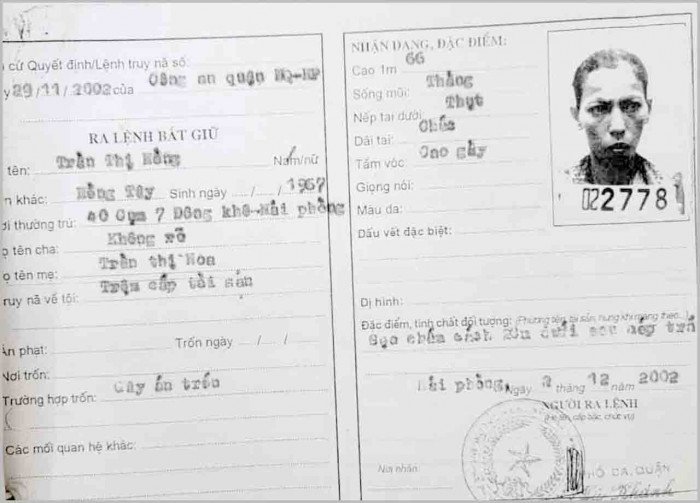 cứ Quyết định/Lệnh truy nã số:
y 29/11/2002 của Công an quận NQ-HP
RA LỆNH BẮT GIỮ
tên: Trần Thị Hồng Nam/nữ
n khác: Hồng Tây Sinh ngày ..../..../1967
ơi thường trú: 40 Cụm 7 Đông khê-Hải phòng
ọ tên cha: Không rõ
ọ tên mẹ: Trần thị Hoa
ruy nã về tội: Trộm cắp tài sản
Án phạt: Trốn ngày ..../..../
Nơi trốn:
Trường hợp trốn: Gây án trốn
Các mối quan hệ khác:
NHẬN DẠNG, ĐẶC ĐIỂM:
Cao 1m 66
Sống mũi: Thẳng
Nếp tai dưới: Thụt
Dái tai: Chúc
Tầm vóc: Cao gầy
Giọng nói:
Màu da:
Dấu vết đặc biệt:
022778
Dị hình:
Đặc điểm, tính chất đối tượng: (Phương tiện, tài sản, hung khí mang theo...)
Sẹo chấm cách dưới sau
Hải phòng, Ngày 2 tháng 12 năm 2002
NGƯỜI RA LỆNH
(Họ tên, cấp bậc, chức vụ)
Nơi nhận:
QUẬN
Khánh